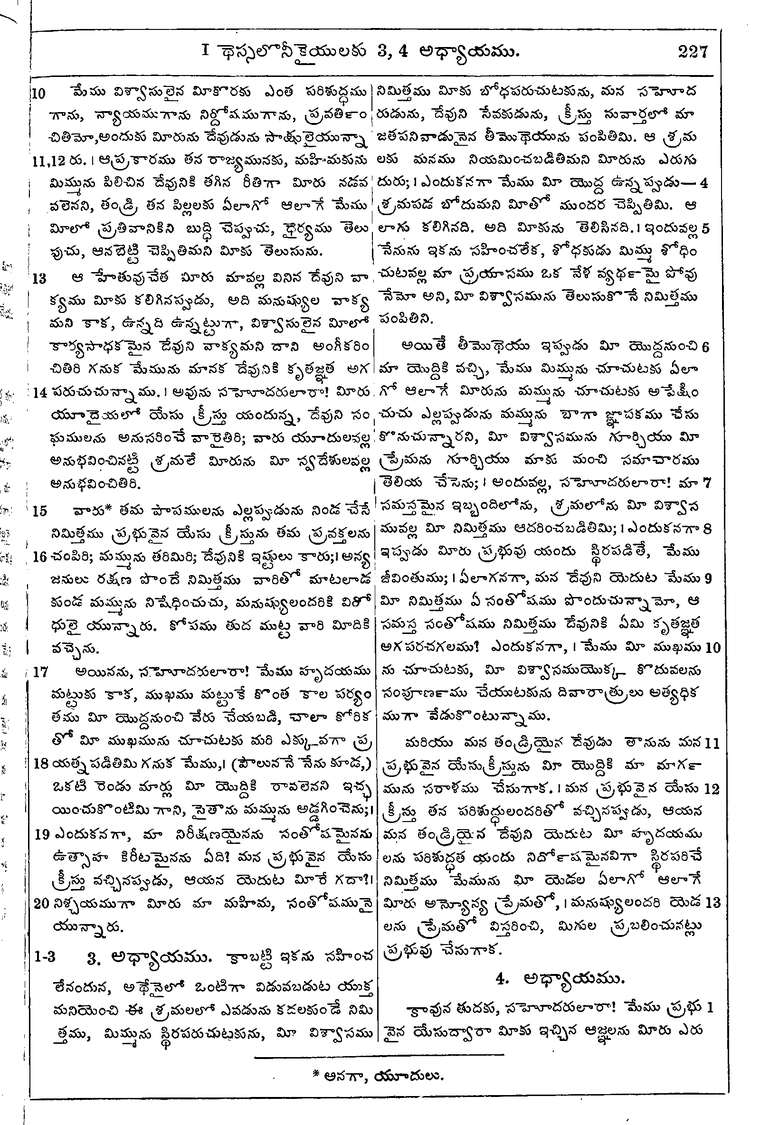 I థెస్సలోనీకైయులకు 3, 4 అధ్యాయము. 227
10 మేము విశ్వాసులైన మీకొరకు ఎంత పరిశుద్ధము
గాను, న్యాయముగాను నిర్దోషముగాను, ప్రవర్తిం
చితిమో,అందుకు మీరును దేవుడును సాక్షులైయున్నా
11,12 రు. । ఆప్రకారము తన రాజ్యమునకు, మహిమకును
మిమ్మును పిలిచిన దేవునికి తగిన రీతిగా మీరు నడవ
వలెనని, తండ్రి తన పిల్లలకు ఏలాగో ఆలాగే మేము
మీలో ప్రతివానికిని బుద్ధి చెప్పుచు, ధైర్యము తెలు
పుచు, ఆనబెట్టి చెప్పితిమని మీకు తెలుసును.
13 ఆ హేతువుచేత మీరు మావల్ల వినిన దేవుని వా
క్యము మీకు కలిగినప్పుడు, అది మనుష్యుల వాక్య
మని కాక, ఉన్నది ఉన్నట్టుగా, విశ్వాసులైన మీలో
కార్యసాధకమైన దేవుని వాక్యమని దాని అంగీకరిం
చితిరి గనుక మేమును మానక దేవునికి కృతజ్ఞత అగ
14 పరుచుచున్నాము. । అవును సహోదరులారా! మీరు
యూదైయలో యేసు క్రీస్తు యందున్న, దేవుని సం
ఘములను అనుసరించే వారైతిరి; వారు యూదులవల్ల
అనుభవించినట్టి శ్రమలే మీరును మీ స్వదేశులవల్ల
అనుభవించితిరి.
15 వారు* తమ పాపములను ఎల్లప్పుడును నిండ చేసే
నిమిత్తము ప్రభువైన యేసు క్రీస్తును తమ ప్రవక్తలను
16 చంపిరి; మమ్మును తరిమిరి; దేవునికి ఇష్టులు కారు; । అన్య
జనులు రక్షణ పొందే నిమిత్తము వారితో మాటలాడ
కుండ మమ్మును నిషేధించుచు, మనుష్యులందరికి విరో
ధులై యున్నారు. కోపము తుద ముట్ట వారి మీదికి
వచ్చెను.
17 అయినను, సహోదరులారా! మేము హృదయము
మట్టుకు కాక, ముఖము మట్టుకే కొంత కాల పర్యం
తము మీ యొద్దనుంచి వేరు చేయబడి, చాలా కోరిక
తో మీ ముఖమును చూచుటకు మరి ఎక్కువగా ప్ర
18 యత్నపడితిమి గనుక మేము, । (పౌలునేనే నేను కూడ,)
ఒకటి రెండు మార్లు మీ యొద్దికి రావలెనని ఇచ్ఛ
యించుకొంటిమి గాని, సైతాను మమ్మును అడ్డగించెను; ।
19 ఎందుకనగా, మా నిరీక్షణయైనను సంతోషమైనను
ఉత్సాహ కిరీటమైనను ఏది? మన ప్రభువైన యేసు
క్రీస్తు వచ్చినప్పుడు, ఆయన యెదుట మీరే గదా? ।
20 నిశ్చయముగా మీరు మా మహిమ, సంతోషమునై
యున్నారు.
1-3 3. అధ్యాయము. కాబట్టి ఇకను సహించ
లేనందున, అథేనైలో ఒంటిగా విడువబడుట యుక్త
మనియెంచి ఈ శ్రమలలో ఎవడును కదలకుండే నిమి
త్తము, మిమ్మును స్థిరపరుచుటకును, మీ విశ్వాసము
నిమిత్తము మీకు బోధపరుచుటకును, మన సహోద
రుడును, దేవుని సేవకుడును, క్రీస్తు సువార్తలో మా
జతపనివాడునైన తీమొతెయును పంపితిమి. ఆ శ్రమ
లకు మనము నియమించబడితిమని మీరును ఎరుగు
దురు; । ఎందుకనగా మేము మీ యొద్ద ఉన్నప్పుడు— 4
శ్రమపడ బోదుమని మీతో ముందర చెప్పితిమి. ఆ
లాగు కలిగినది. అది మీకును తెలిసినది. । ఇందువల్ల 5
నేనును ఇకను సహించలేక, శోధకుడు మిమ్ము శోధిం
చుటవల్ల మా ప్రయాసము ఒక వేళ వ్యర్థమై పోవు
నేమో అని, మీ విశ్వాసమును తెలుసుకొనే నిమిత్తము
పంపితిని.
అయితే తీమొతెయు ఇప్పుడు మీ యొద్దనుంచి 6
మా యొద్దికి వచ్చి, మేము మిమ్మును చూచుటకు ఏలా
గో ఆలాగే మీరును మమ్మును చూచుటకు అపేక్షిం
చుచు ఎల్లప్పుడును మమ్మును బాగా జ్ఞాపకము చేసు
కొనుచున్నారని, మీ విశ్వాసమును గూర్చియు మీ
ప్రేమను గూర్చియు మాకు మంచి సమాచారము
తెలియ చేసెను; । అందువల్ల, సహోదరులారా! మా 7
సమస్తమైన ఇబ్బందిలోను, శ్రమలోను మీ విశ్వాస
మువల్ల మీ నిమిత్తము ఆదరించబడితిమి; । ఎందుకనగా 8
ఇప్పుడు మీరు ప్రభువు యందు స్థిరపడితే, మేము
జీవింతుము; । ఏలాగనగా, మన దేవుని యెదుట మేము 9
మీ నిమిత్తము ఏ సంతోషము పొందుచున్నామో, ఆ
సమస్త సంతోషము నిమిత్తము దేవునికి ఏమి కృతజ్ఞత
అగపరచగలము? ఎందుకనగా, । మేము మీ ముఖము 10
ను చూచుటకు, మీ విశ్వాసముయొక్క కొదువలను
సంపూర్ణము చేయుటకును దివారాత్రులు అత్యధిక
ముగా వేడుకొంటున్నాము.
మరియు మన తండ్రియైన దేవుడు తానును మన 11
ప్రభువైన యేసుక్రీస్తును మీ యొద్దికి మా మార్గ
మును సరాళము చేసుగాక. । మన ప్రభువైన యేసు 12
క్రీస్తు తన పరిశుద్ధులందరితో వచ్చినప్పుడు, ఆయన
మన తండ్రియైన దేవుని యెదుట మీ హృదయము
లను పరిశుద్ధత యందు నిర్దోషమైనవిగా స్థిరపరిచే
నిమిత్తము మేమును మీ యెడల ఏలాగో ఆలాగే
మీరు అన్యోన్య ప్రేమతో, । మనుష్యులందరి యెడ 13
లను ప్రేమతో విస్తరించి, మిగుల ప్రబలించునట్లు
ప్రభువు చేసుగాక.
4. అధ్యాయము.
కావున తుదకు, సహోదరులారా! మేము ప్రభు 1
వైన యేసుద్వారా మీకు ఇచ్చిన ఆజ్ఞలను మీరు ఎరు
* అనగా, యూదులు.